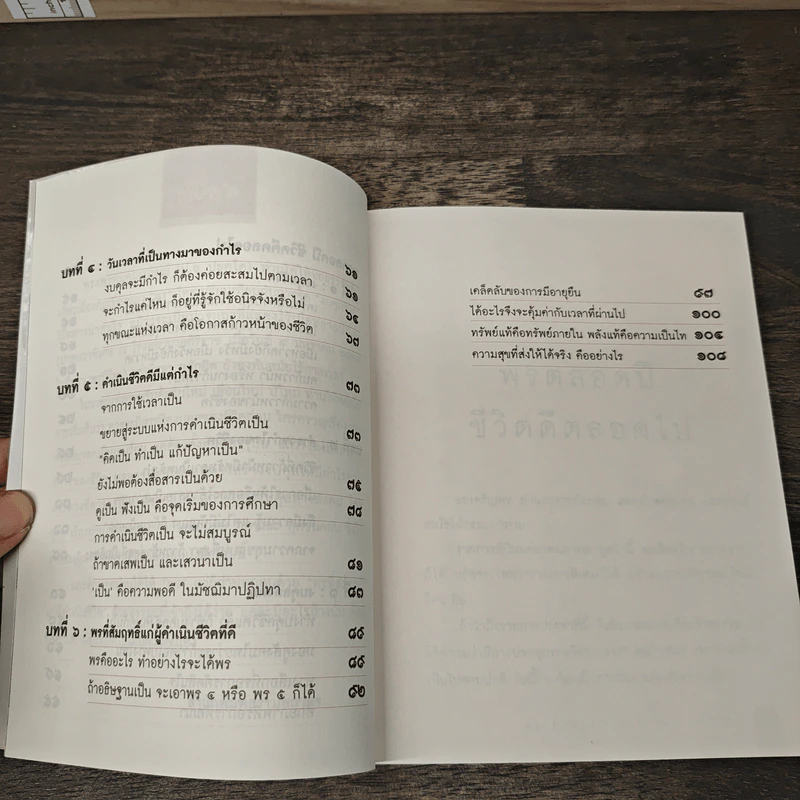 บทที่ ๔ : วันเวลาที่เป็นทางมาของกำไร ๖๑
งบดุลจะมีกำไร ก็ต้องค่อยสะสมไปตามเวลา ๖๑
จะกำไรแค่ไหน ก็อยู่ที่รู้จักใช้อนิจจังหรือไม่ ๖๔
ทุกขณะแห่งเวลา คือโอกาสก้าวหน้าของชีวิต ๖๗
บทที่ ๕ : ดำเนินชีวิตคืมีแต่กำไร ๗๓
จากการใช้เวลาเป็น
ขยายสู่ระบบแห่งการดำเนินชีวิตเป็น ๗๓
"คิดเป็น ทำเป็น แก้ปัญหาเป็น"
ยังไม่พอต้องสื่อสารเป็นด้วย ๗๕
ดูเป็น ฟังเป็น คือจุดเริ่มของการศึกษา ๗๘
การดำเนินชีวิตเป็น จะไม่สมบูรณ์
ถ้าขาดเสพเป็น และเสวนาเป็น ๘๑
'เป็น' คือความพอดี ในมัชฌิมาปฏิปทา ๘๓
บทที่ ๖ : พรที่สัมฤทธิ์แก่ผู้ดำเนินชีวิตที่ดี ๘๙
พรคืออะไร ทำอย่างไรจะได้พร ๘๙
ถ้าอธิษฐานเป็น จะเอาพร ๔ หรือ พร ๕ ก็ได้ ๙๒
เคล็ดลับของการมีอายุยืน ๙๗
ได้อะไรจึงจะคุ้มค่ากับเวลาที่ผ่านไป ๑๐๐
ทรัพย์แท้คือทรัพย์ภายใน พลังแท้คือความเป็นไท ๑๐๔
ความสุขที่ส่งให้ได้จริง คืออย่างไร ๑๐๘